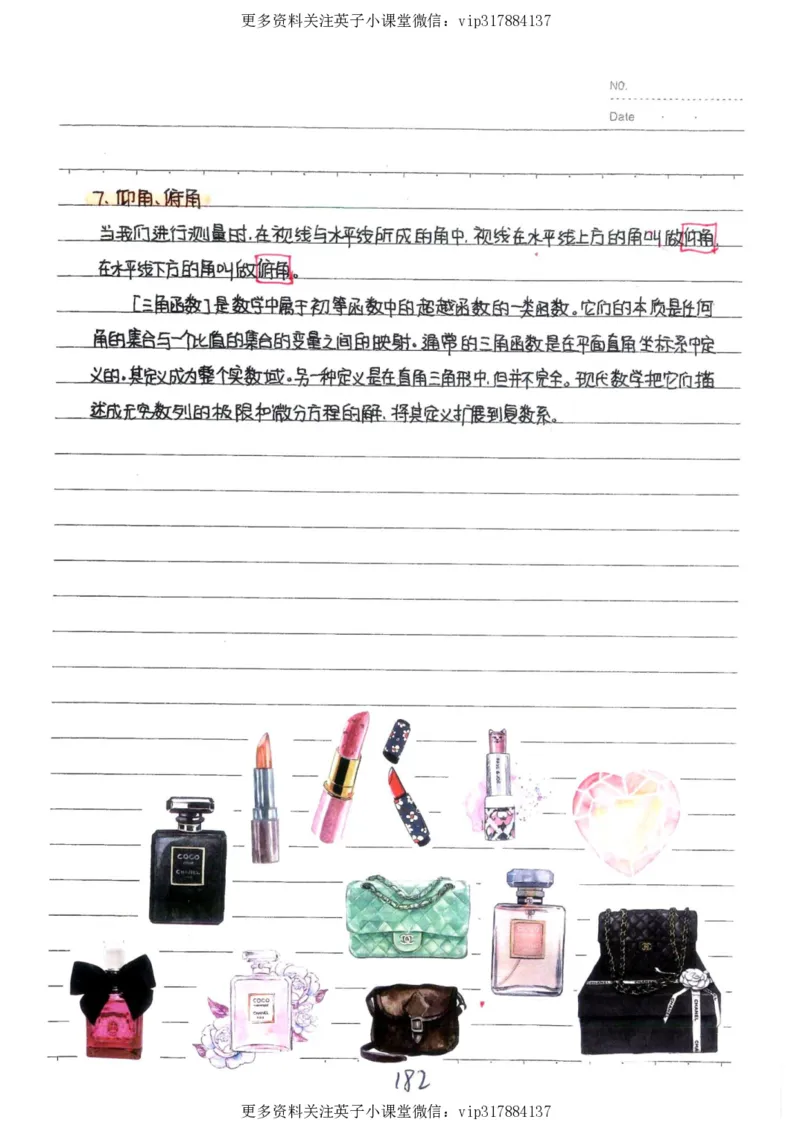 更多资料关注英子小课堂微信：vip317884137
NO.
Date
7、仰角、俯角
当我们进行测量时，在视线与水平线所成的角中，视线在水平线上方的角叫做仰角，
在水平线下方的角叫做俯角。
[三角函数]是数学中属于初等函数中的超越函数的一类函数。它们的本质是任何
角的集合与一个比值的集合的变量之间的映射。通常的三角函数是在平面直角坐标系中定
义的。其定义成为整个实数域。另一种定义是在直角三角形中，但并不完全。现代数学把它们描
述成无穷数列的极限和微分方程的解，将其定义扩展到复数系。
COCO
CHANEL
COCO
CHANEL
CHANEL
182
更多资料关注英子小课堂微信：vip317884137